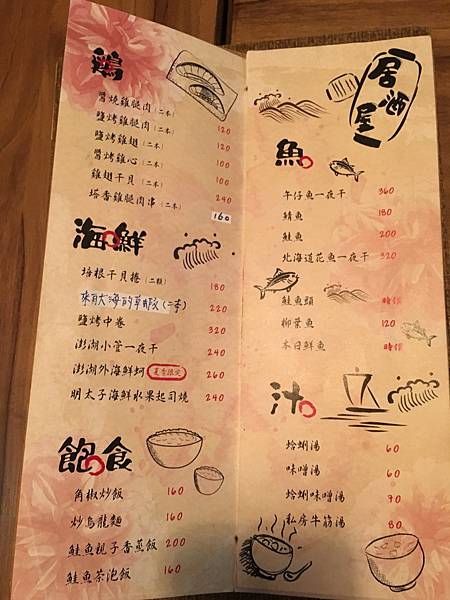 鶏
醬燒雞腿肉(二本) 120
鹽烤雞腿肉(二本) 120
鹽烤雞翅(二本) 100
醬烤雞心(二本) 100
雞翅干貝(二本) 240
塔香雞腿肉串(二本) 160
海鮮
培根干貝捲(二顆) 180
來自大海的草蝦(二本) 220
鹽烤中卷 320
澎湖小管一夜干 240
澎湖外海鮮蚵 夏季限定 260
明太子海鮮水果起司燒 240
飽食
角椒炒飯 160
炒烏龍麵 160
鮭魚親子香蔥飯 200
鮭魚茶泡飯 160
居酒屋
魚
午仔魚一夜干 360
鯖魚 180
鮭魚 200
北海道花魚一夜干 320
鮭魚頭 時價
柳葉魚 120
本日鮮魚 時價
汁
蛤蜊湯 60
味噌湯 60
蛤蜊味噌湯 70
私房牛筋湯 80